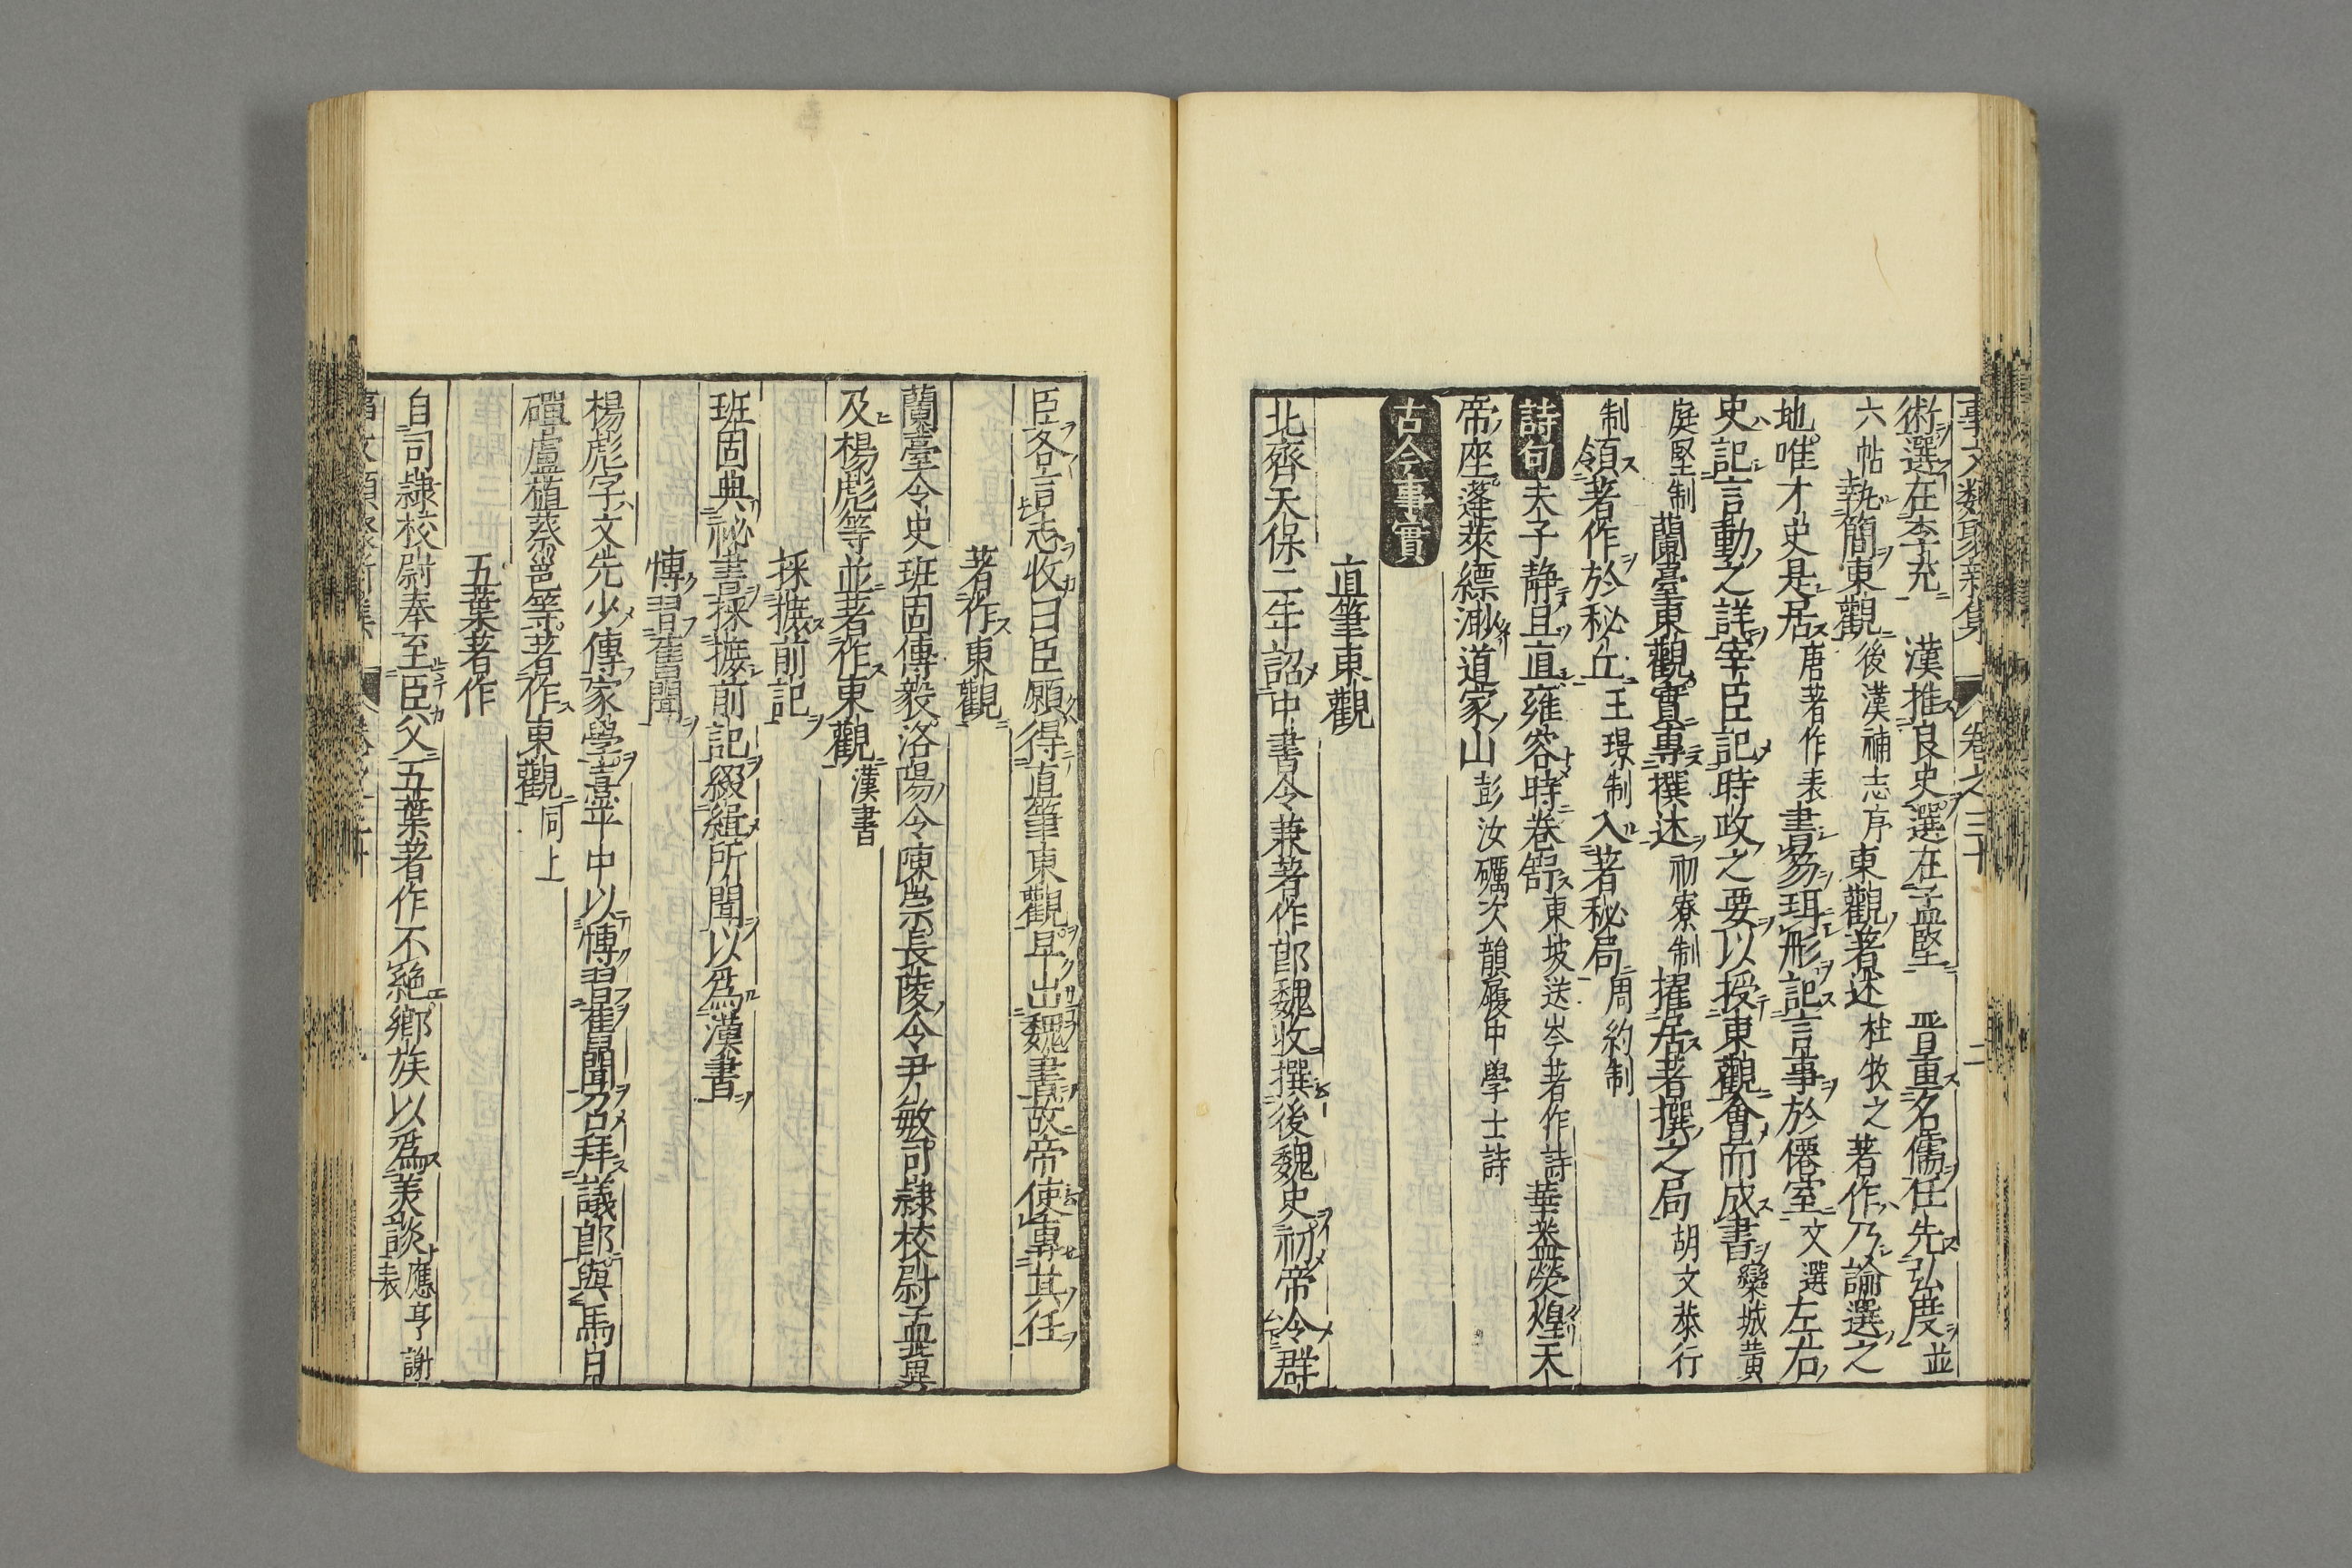 事文類聚新集 卷之三十 二
術選在李充 漢推良史選在孟堅 晋重名儒任先弘度並
六帖執簡東觀後漢補志序東觀著述杜牧之著作乃論選之
地唯才史是居唐著作表書笏珥彤記言事於僊室文選左右
史記言動之詳宰臣記時政之要以授東觀會而成書欒城黃
庭堅制蘭臺東觀實專撰述初寮制擢居著撰之局胡文恭行
制領著作於秘丘王璟制入著秘局周約制
詩句夫子静且直雍容時卷舒東坡送岑著作詩華盖熒煌天
帝座蓬萊縹渺道家山彭汝礪次韻履中學士詩
古今事實
直筆東觀
北齊天保二年詔中書令兼著作郎魏收撰後魏史初帝令群
臣各言志收曰臣願得直筆東觀早出魏書故帝使專其任
著作東觀
蘭臺令史班固傅毅洛陽令陳宗長陵令尹敏司隷校尉孟異
及楊彪等並著作東觀漢書
採摭前記
班固典祕書採摭前記綴緝所聞以爲漢書
慱習舊聞
楊彪字文先少傳家學熹平中以慱習舊聞召拜議郎與馬日
磾盧植蔡邕等著作東觀同上
五葉著作
自司隷校尉奉至臣父五葉著作不絶鄉族以爲美談應亨謝表